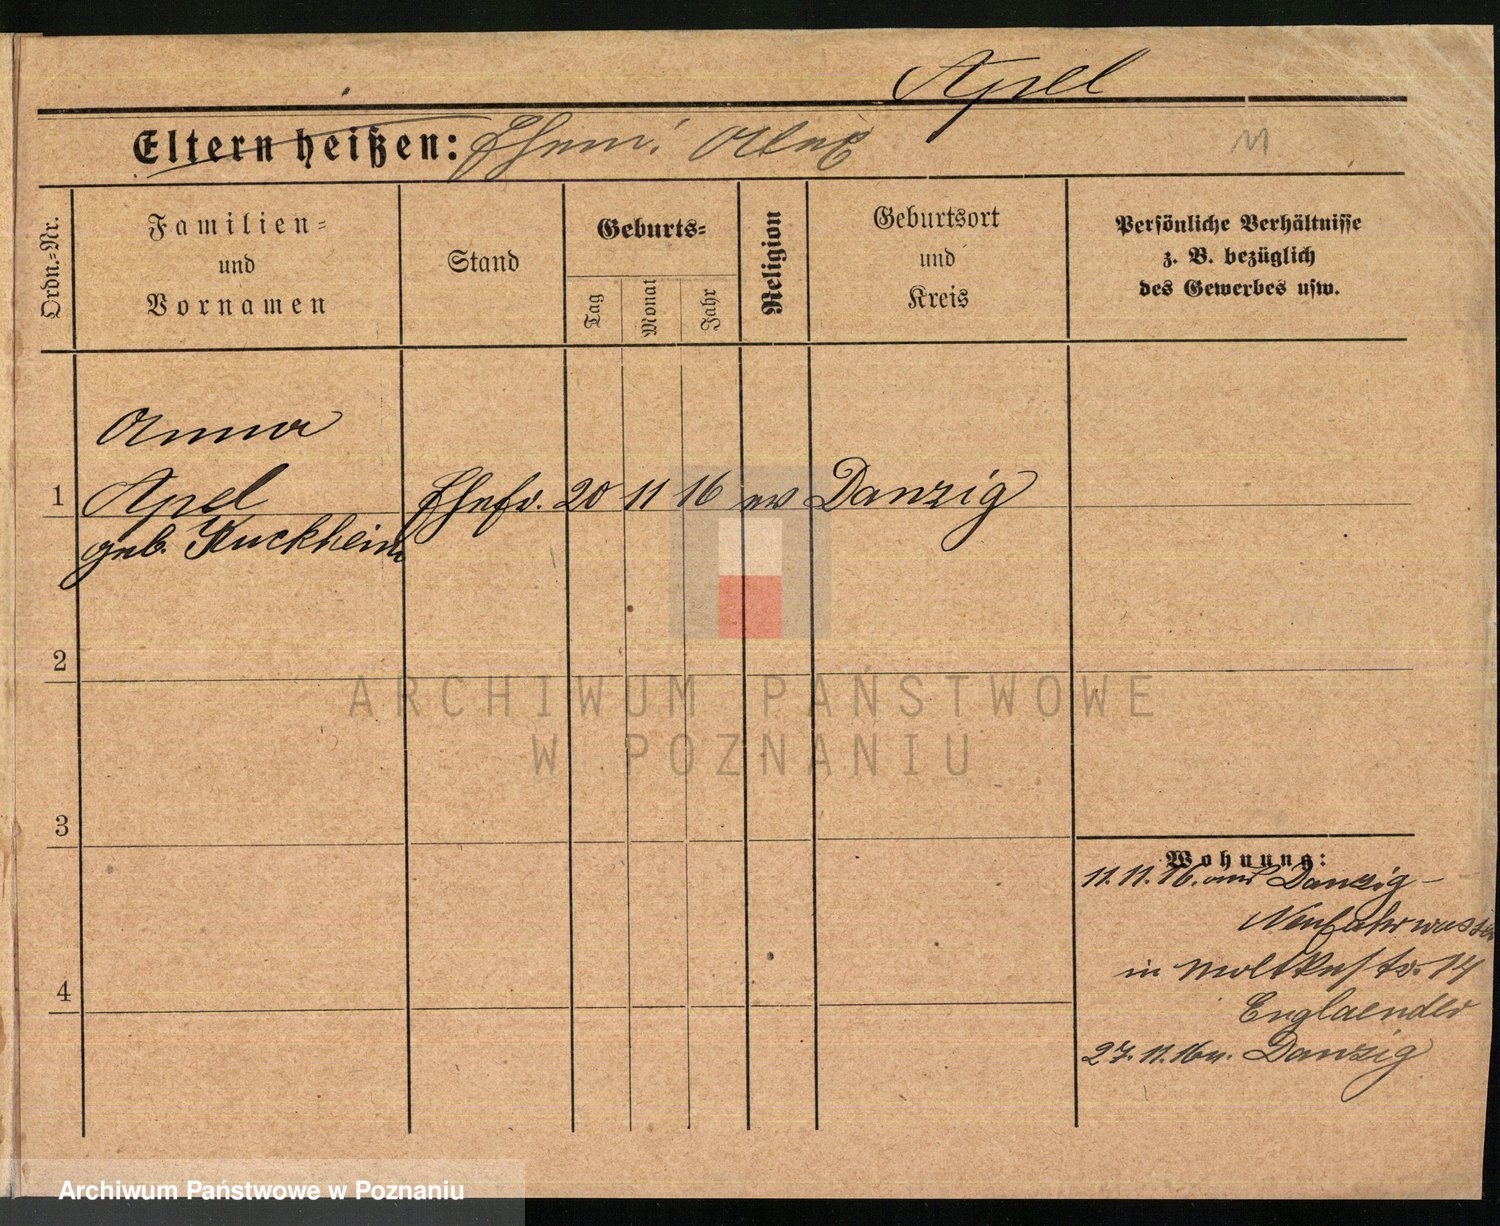 Apel
Eltern heißen: Ehem: Alex
11
Ordn.=Nr.
Familien=
und
Vornamen
Stand
Geburts=
Tag
Monat
Jahr
Religion
Geburtsort
und
Kreis
Persönliche Verhältnisse
z. B. bezüglich
des Gewerbes usw.
Anna
1 Apel Ehefr. 20 11 16 ev Danzig
geb. Kuckheim
2
ARCHIWUM PAŃSTWOWE
W POZNANIU
3
Wohnung:
11.11.16. aus Danzig-
Neufahrwasser
in Moltkestr. 14
Englaender
27.11.16 n. Danzig
4
Archiwum Państwowe w Poznaniu